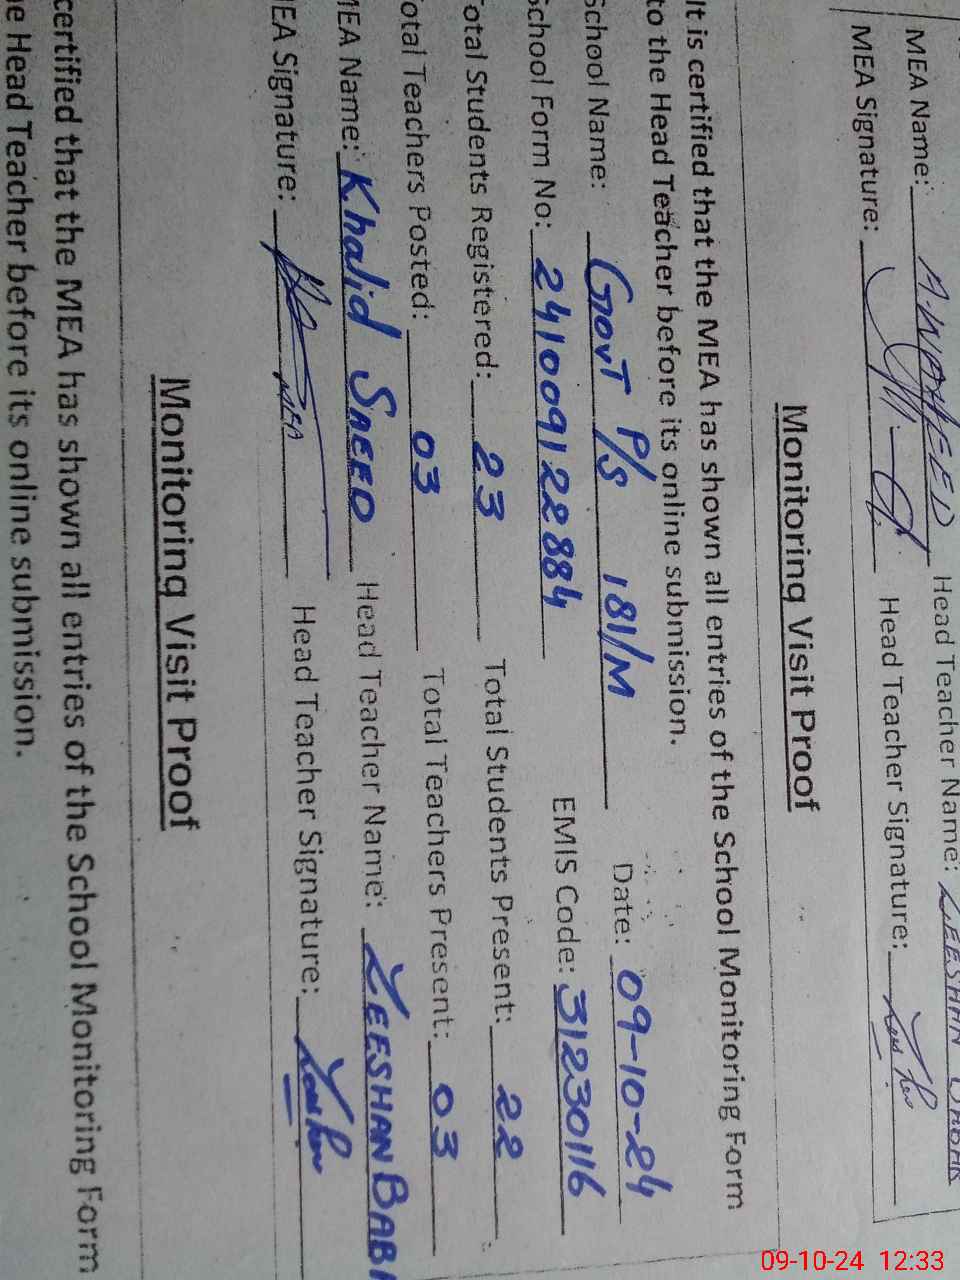 MEA Name: A. WAHEED Head Teacher Name: ZEESHAN BABAR
MEA Signature: Head Teacher Signature:
Monitoring Visit Proof
It is certified that the MEA has shown all entries of the School Monitoring Form
to the Head Teacher before its online submission.
School Name: GOVT P/S 181/M Date: 09-10-24
School Form No: 241009122884 EMIS Code: 31230116
Total Students Registered: 23 Total Students Present: 22
Total Teachers Posted: 03 Total Teachers Present: 03
MEA Name: Khalid SAEED Head Teacher Name: ZEESHAN BABA
MEA Signature: MEA Head Teacher Signature:
Monitoring Visit Proof
certified that the MEA has shown all entries of the School Monitoring Form
he Head Teacher before its online submission.
09-10-24 12:33